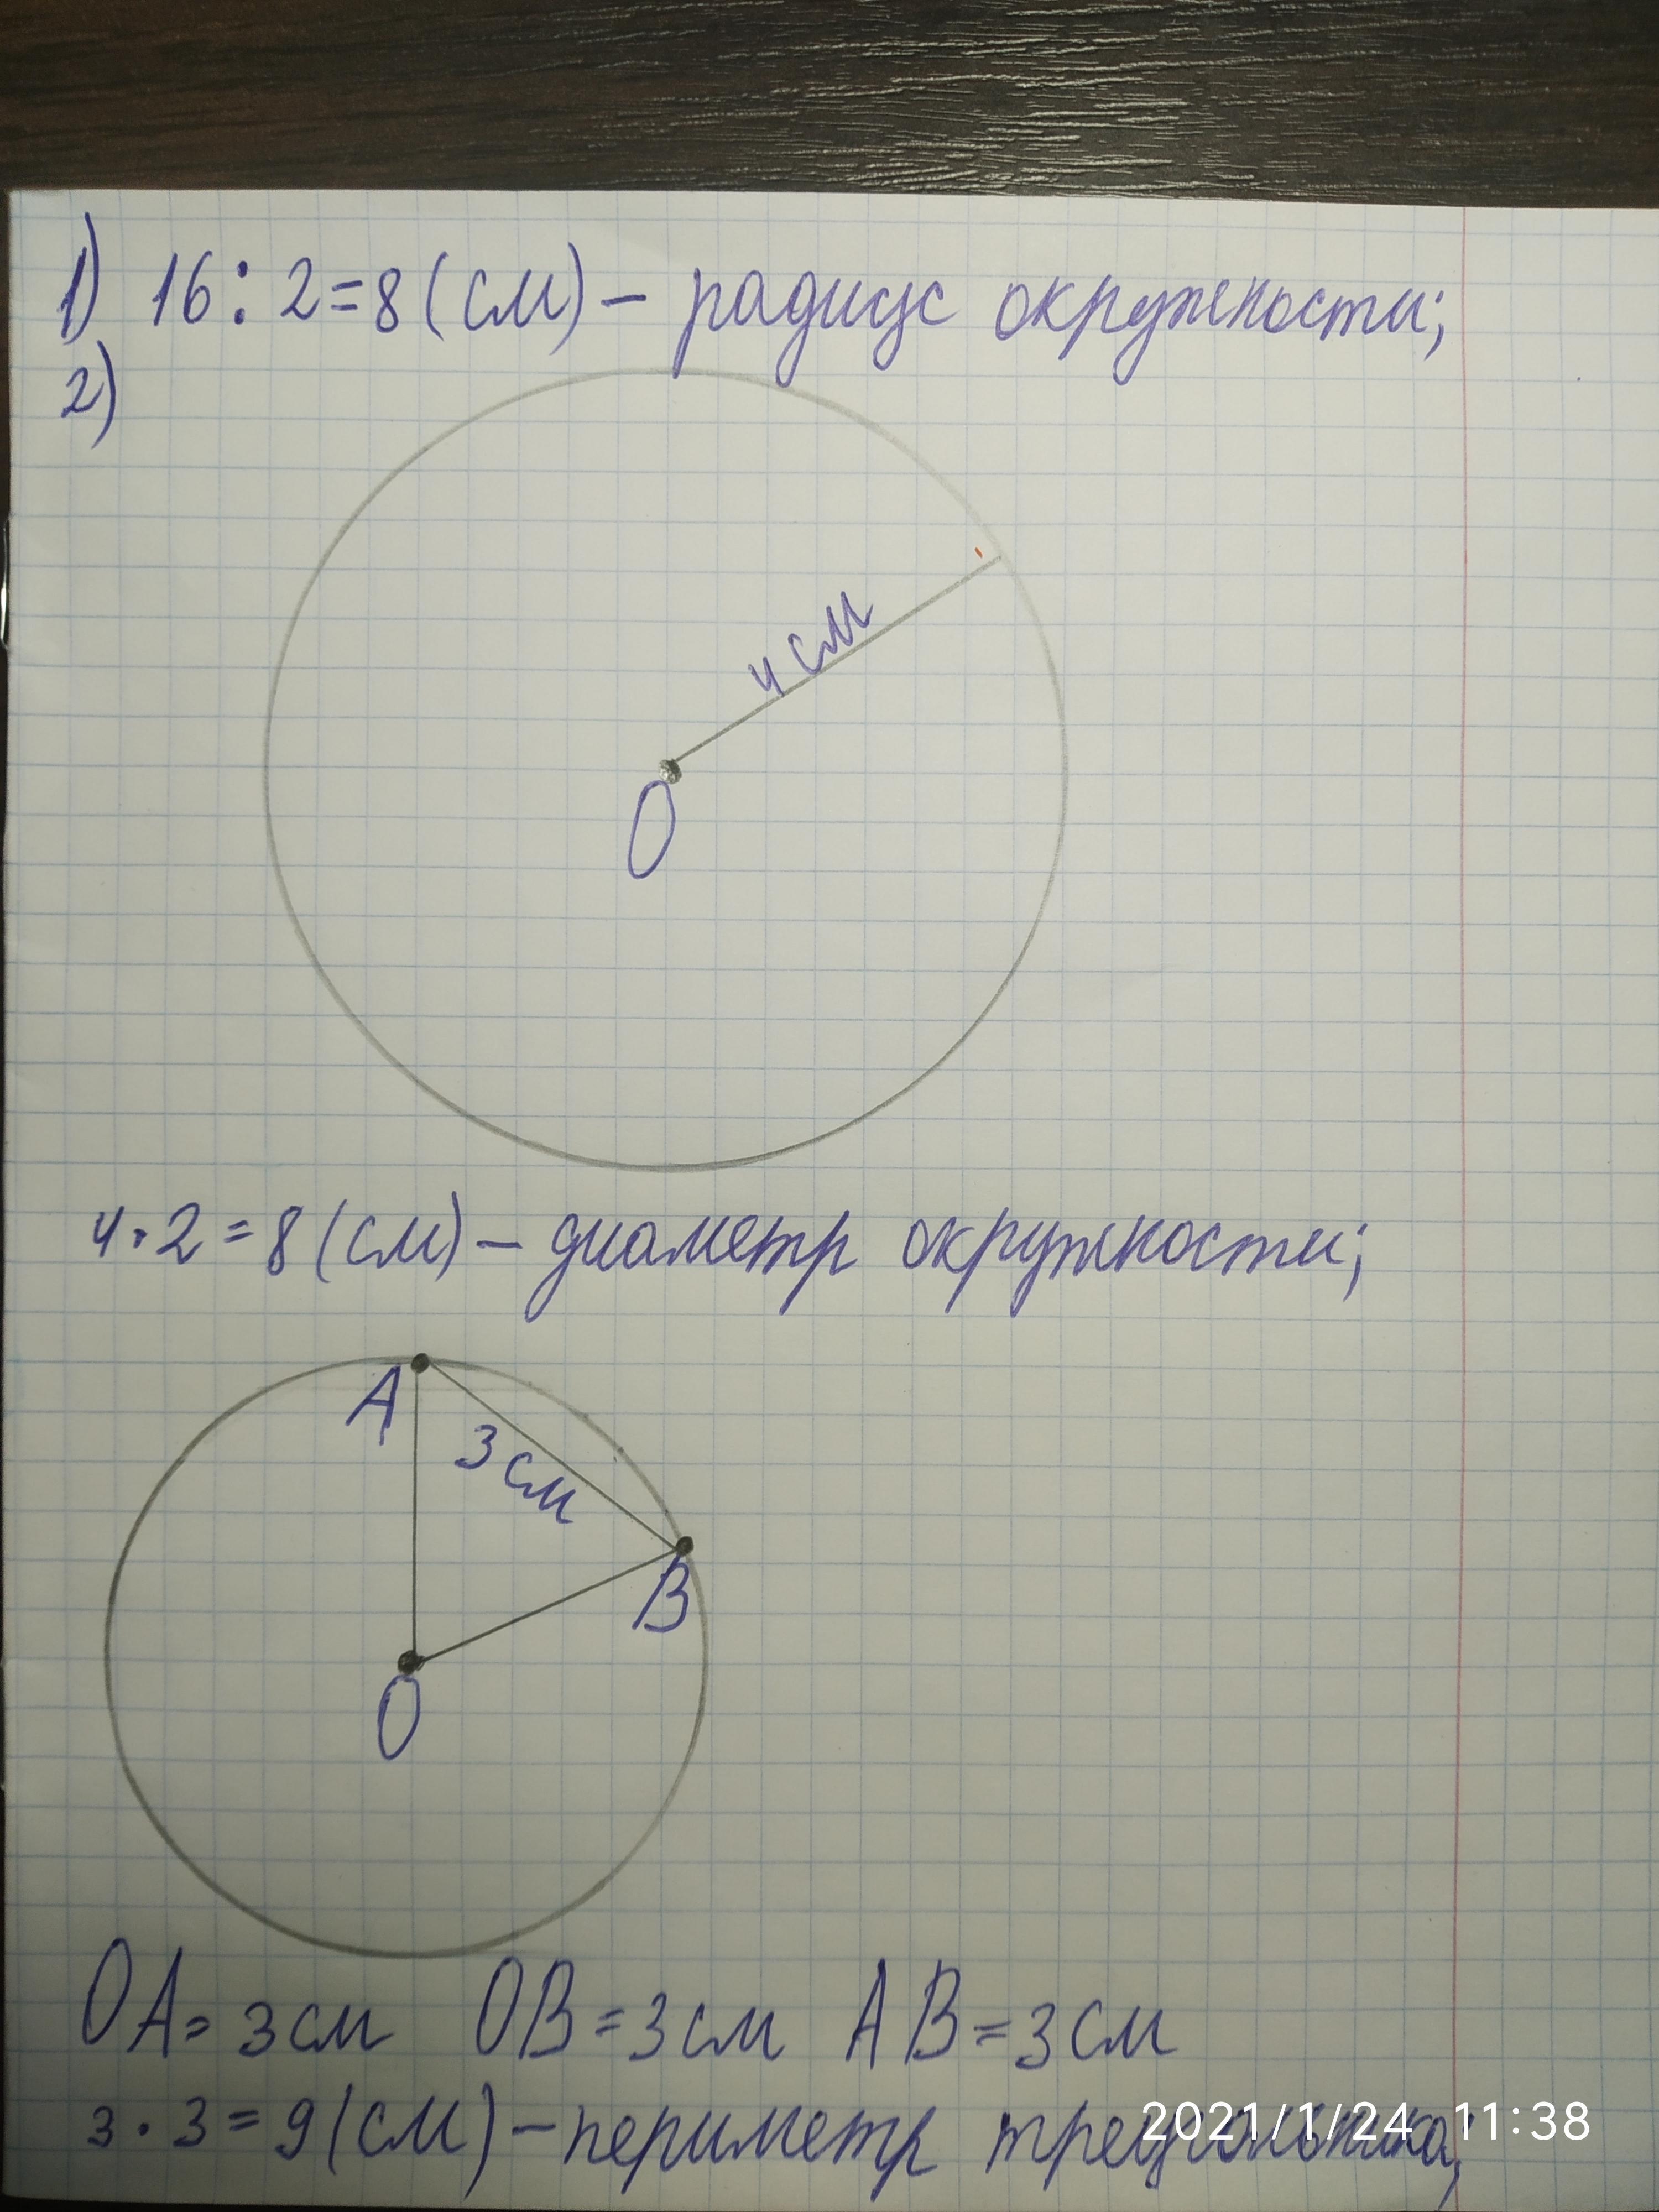 1) 16 : 2 = 8 (см) – радиус окружности;
2)
4 см
O
4 · 2 = 8 (см) – диаметр окружности;
A
3 см
B
O
OA = 3 см OB = 3 см AB = 3 см
3 · 3 = 9 (см) – периметр треугольника;
2021/1/24 11:38